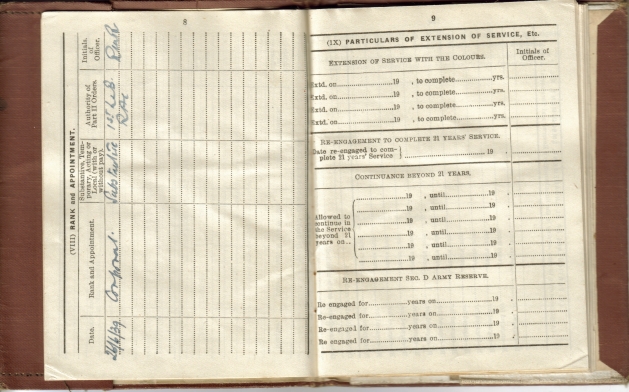 8
(VIII) RANK AND APPOINTMENT.
Date.
Rank and Appointment.
Substantive, Tem-
porary, Acting or
Local (with or
without pay).
Authority of
Part II Orders.
Initials of
Officer.
Corporal.
Substantive
9
(IX) PARTICULARS OF EXTENSION OF SERVICE, Etc.
EXTENSION OF SERVICE WITH THE COLOURS.
Initials of
Officer.
Extd. on 19 , to complete yrs.
Extd. on 19 , to complete yrs.
Extd. on 19 , to complete yrs.
Extd. on 19 , to complete yrs.
RE-ENGAGEMENT TO COMPLETE 21 YEARS' SERVICE.
Date re-engaged to com-
plete 21 years' Service } 19 .
CONTINUANCE BEYOND 21 YEARS.
Allowed to
continue in
the Service
beyond 21
years on
19 , until 19
19 , until 19
19 , until 19
19 , until 19
19 , until 19
19 , until 19
RE-ENGAGEMENT SEC. D ARMY RESERVE.
Re engaged for years on 19 .
Re-engaged for years on 19 .
Re-engaged for years on 19 .
Re engaged for years on 19 .